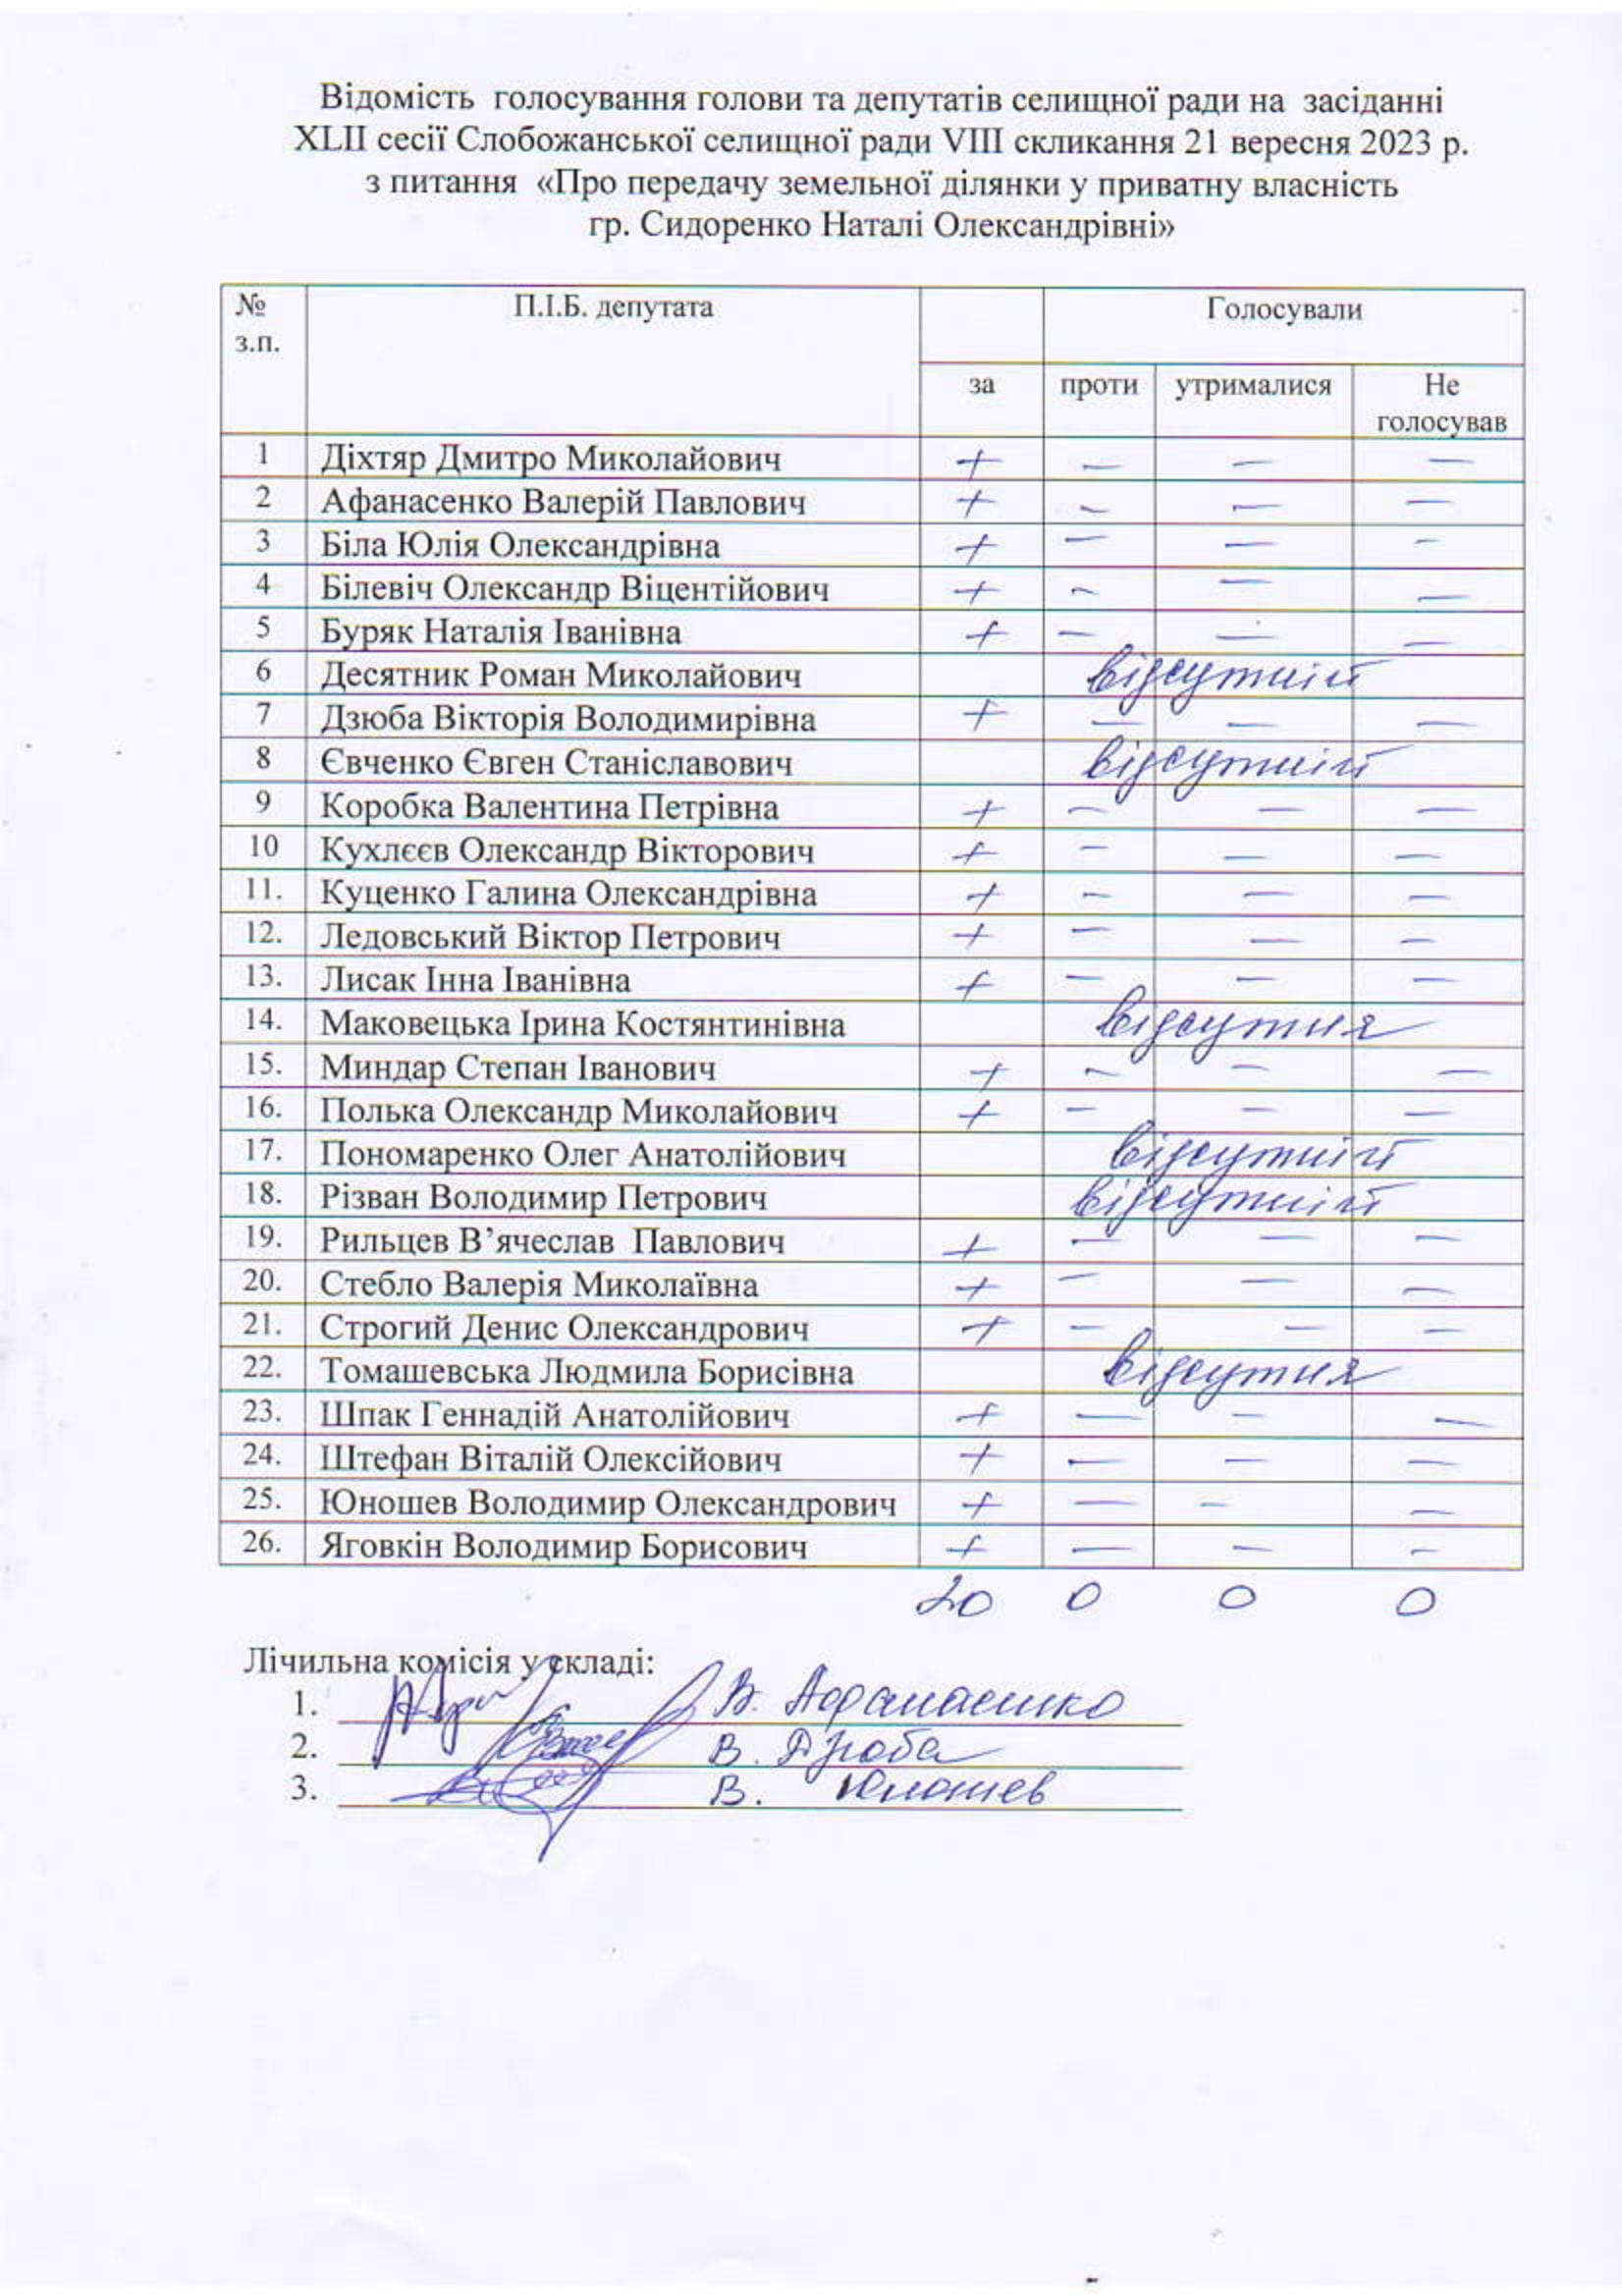 Відомість голосування голови та депутатів селищної ради на засіданні
XLII сесії Слобожанської селищної ради VIII скликання 21 вересня 2023 р.
з питання «Про передачу земельної ділянки у приватну власність
гр. Сидоренко Наталі Олександрівні»
№ з.п. П.І.Б. депутата Голосували
за проти утрималися Не голосував
1 Діхтяр Дмитро Миколайович + – – –
2 Афанасенко Валерій Павлович + – – –
3 Біла Юлія Олександрівна + – – –
4 Білевіч Олександр Віцентійович + – – –
5 Буряк Наталія Іванівна + – – –
6 Десятник Роман Миколайович відсутній
7 Дзюба Вікторія Володимирівна + – – –
8 Євченко Євген Станіславович відсутній
9 Коробка Валентина Петрівна + – – –
10 Кухлєєв Олександр Вікторович + – – –
11. Куценко Галина Олександрівна + – – –
12. Ледовський Віктор Петрович + – – –
13. Лисак Інна Іванівна + – – –
14. Маковецька Ірина Костянтинівна відсутня
15. Миндар Степан Іванович + – – –
16. Полька Олександр Миколайович + – – –
17. Пономаренко Олег Анатолійович відсутній
18. Різван Володимир Петрович відсутній
19. Рильцев В’ячеслав Павлович + – – –
20. Стебло Валерія Миколаївна + – – –
21. Строгий Денис Олександрович + – – –
22. Томашевська Людмила Борисівна відсутня
23. Шпак Геннадій Анатолійович + – – –
24. Штефан Віталій Олексійович + – – –
25. Юношев Володимир Олександрович + – – –
26. Яговкін Володимир Борисович + – – –
20 0 0 0
Лічильна комісія у складі:
1. В. Афанасенко
2. В. Дзюба
3. В. Юношев